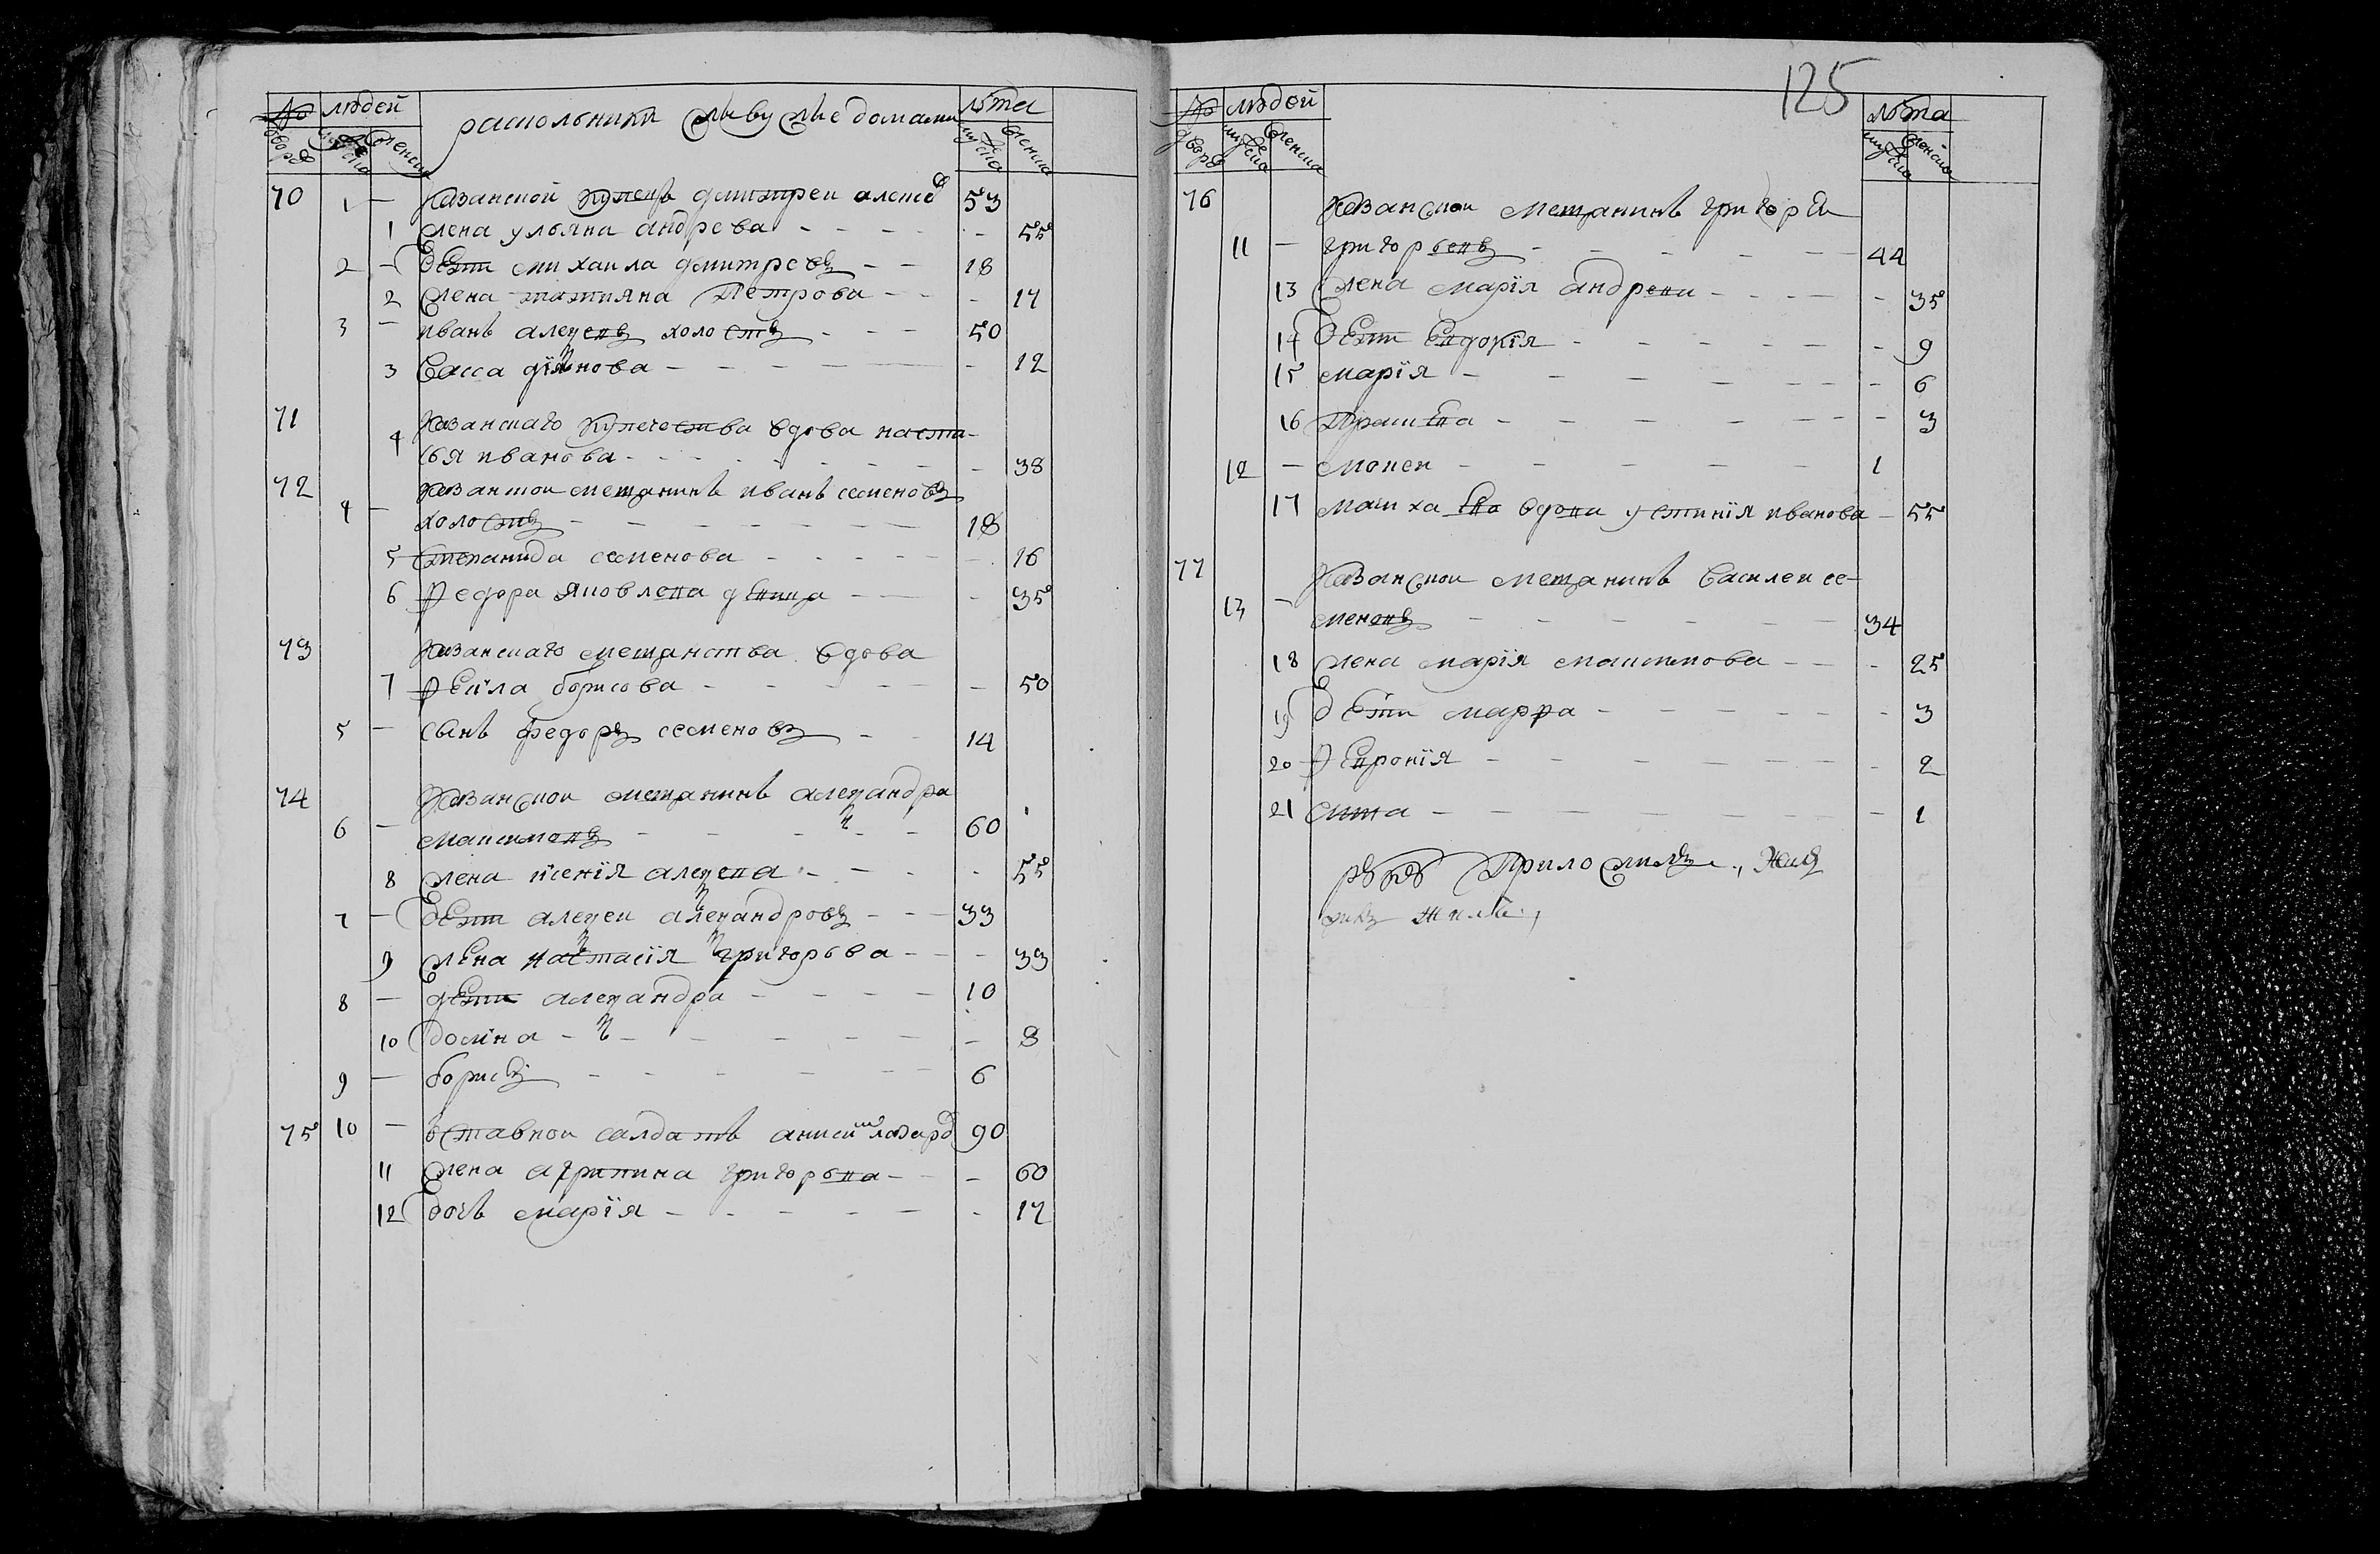 № людей раскольники живущие домами лѣта
дворъ мужеска женска мужеска женска
70 1 — казанской купецъ дмитреи алексѣ 53
1 жена ульяна андрева - - - - 55
2 — дѣти михаила дмитревъ - - 18
2 жена татияна Петрова - - - 17
3 — иванъ алексеевъ холостъ - - - 50
3 васса иванова - - - - 12
71 4 казанскаго купечества вдова наста-
сья иванова - - - - - 38
72 4 — казанскои мещанинъ иванъ семеновъ
холостъ - - - - - 18
5 степанида семенова - - - - 16
6 Федора яковлева девица - - - 35
73 казанскаго мещанства вдова
7 Фекла борисова - - - - - 50
5 — сынъ федоръ семеновъ - - 14
74 казанскои мещанинъ александра
6 — максимовъ - - - - 60
8 жена ксенія алексева - - - 55
7 — дѣти алексеи александровъ - - - 33
9 жена настасія григорьева - - - 33
8 — дѣти александра - - - - 10
10 домна - - - - - 8
9 — борисъ - - - - - 6
75 10 — отставнои салдатъ анисим 90
11 жена агрипина григорьева - - - 60
12 дочь марія - - - - - 17
125
№ людей лѣта
дворъ мужеска женска мужеска женска
76 казанскои мещанинъ григореи
11 — григорьевъ - - - - - 44
13 жена марія андрева - - - - 35
14 дѣти евдокія - - - - - 9
15 марія - - - - - 6
16 Прасковя - - - - - 3
12 — мокеи - - - - - 1
17 мачиха ево вдова устинія иванова - 55
77 казанскои мещанинъ василеи се-
13 — меновъ - - - - - 34
18 жена марія максимова - - - 25
19 дѣти марфа - - - - - 3
20 Февронія - - - - - 2
21 - - - - - 1